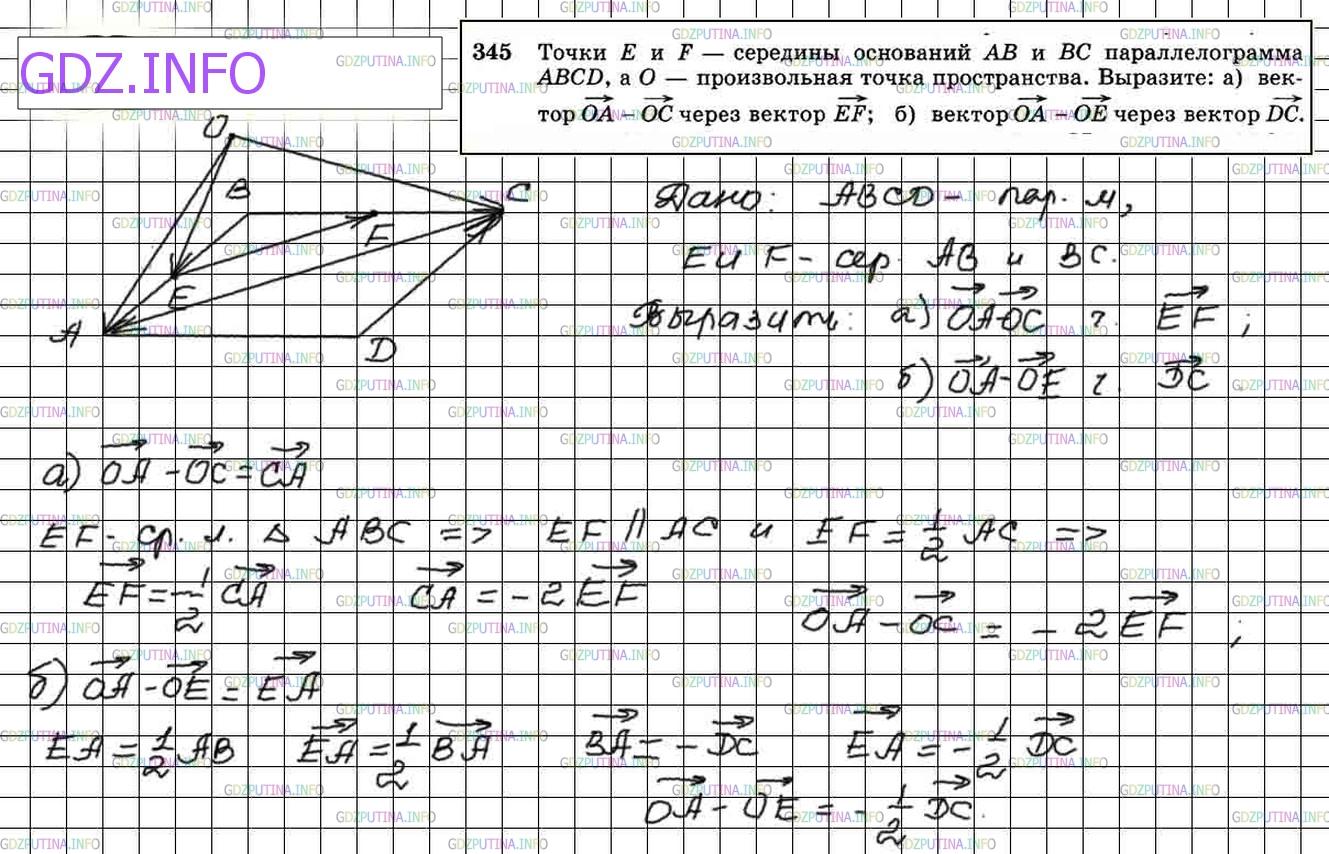 GDZ.INFO
345 Точки E и F — середины оснований AB и BC параллелограмма
ABCD, а O — произвольная точка пространства. Выразите: а) век-
тор OA⃗ − OC⃗ через вектор EF⃗; б) вектор OA⃗ − OE⃗ через вектор DC⃗.
O
B
C
F
E
A
D
Дано: ABCD - пар. м,
E и F - сер. AB и BC.
Выразить: а) OA⃗-OC⃗ ч. EF⃗ ;
б) OA⃗-OE⃗ ч. DC⃗
а) OA⃗ - OC⃗ = CA⃗
EF - ср. л. △ ABC => EF || AC и EF = 1/2 AC =>
EF⃗ = -1/2 CA⃗ CA⃗ = -2 EF⃗ OA⃗ - OC⃗ = -2 EF⃗ ;
б) OA⃗ - OE⃗ = EA⃗
EA = 1/2 AB EA⃗ = 1/2 BA⃗ BA⃗ = - DC⃗ EA⃗ = - 1/2 DC⃗
OA⃗ - OE⃗ = - 1/2 DC⃗.
GDZPUTINA.INFO